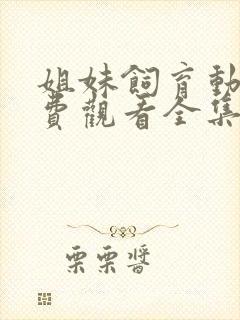 姐妹飼育動
費觀看全集
栗栗醬